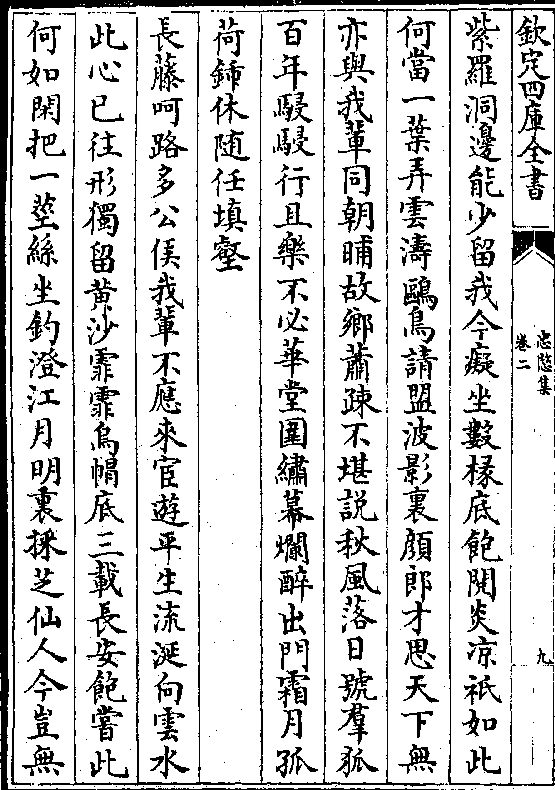 欽定四庫全書
忠愍集
卷二
九
紫羅洞邊能少留我今癡坐數椽底飽閱炎凉祇如此
何當一葉弄雲濤鷗鳥請盟波影裏顔郎才思天下無
亦與我輩同朝晡故鄉蕭疎不堪說秋風落日號羣狐
百年駸駸行且樂不必華堂圍繡幕爛醉出門霜月孤
荷鍤休随任填壑
長藤呵路多公侯我輩不應來宦遊平生流涎向雲水
此心已往形獨留黄沙霏霏烏㡌底三載長安飽嘗此
何如閑把一莖絲坐釣澄江月明裏採芝仙人今豈無